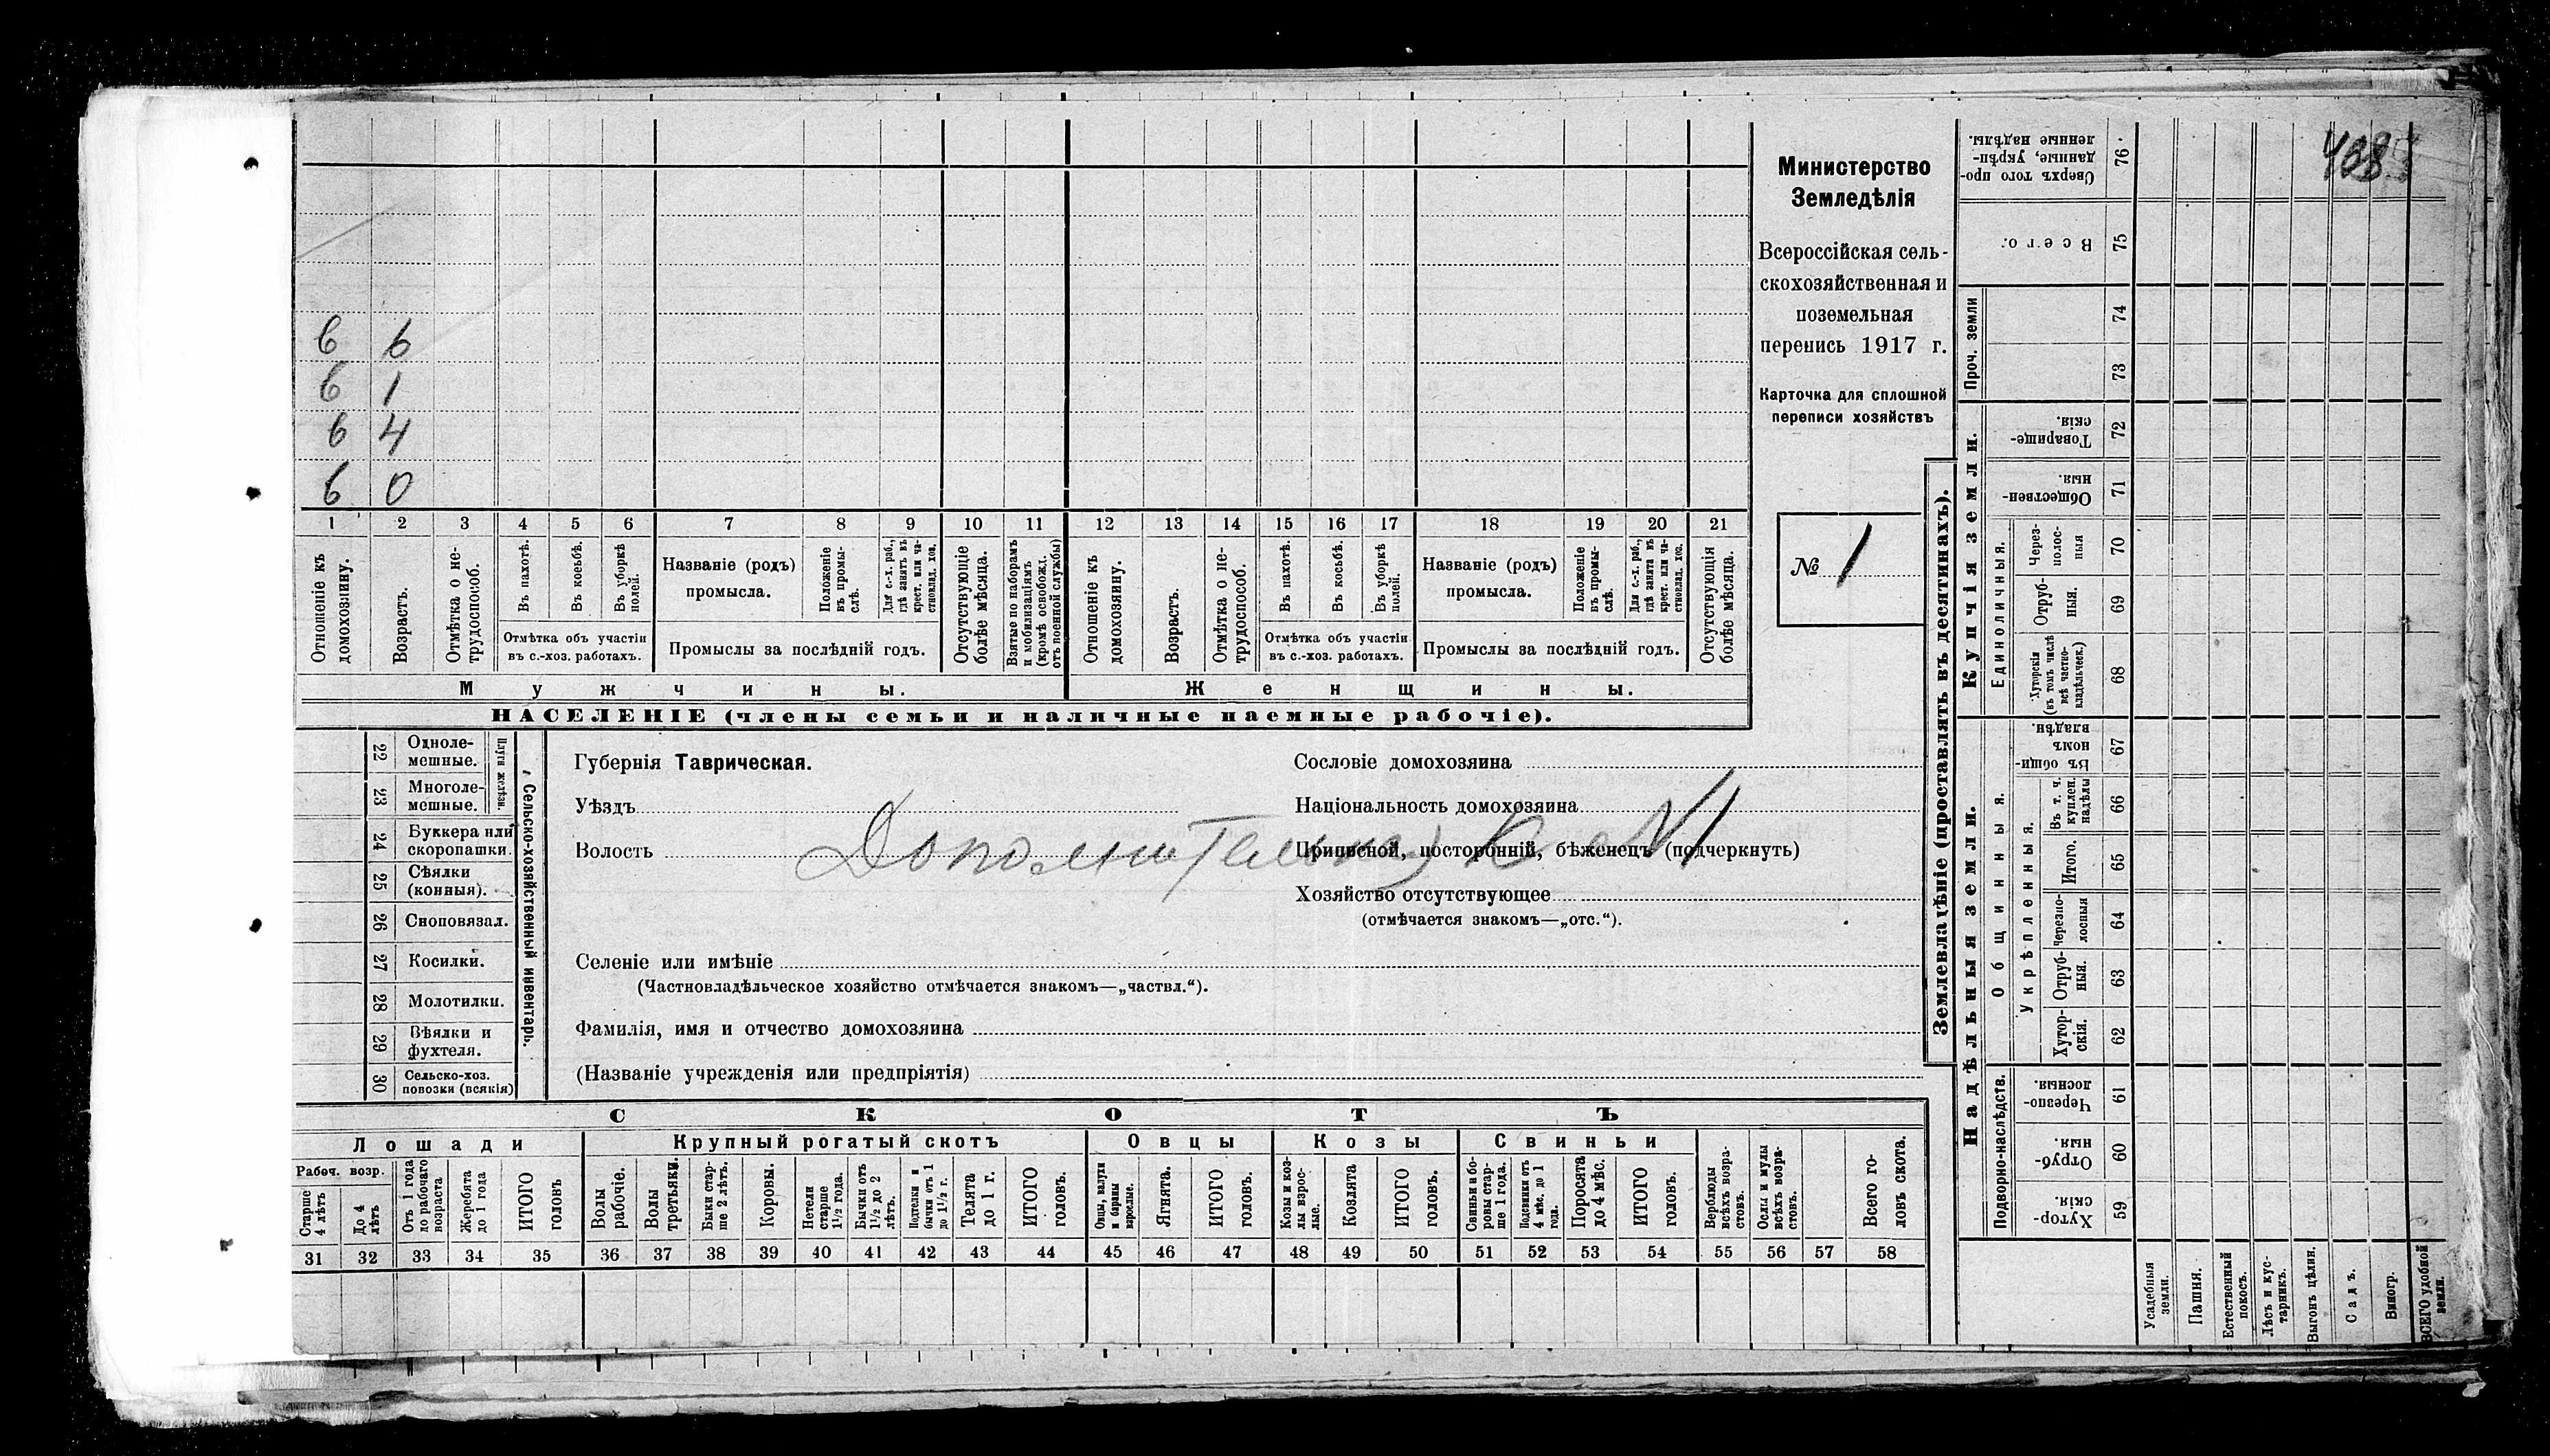 408
Министерство
Земледѣлія
Всероссійская сель-
скохозяйственная и
поземельная
перепись 1917 г.
Карточка для сплошной
переписи хозяйствъ
№ 1
6 6
6 1
6 4
6 0
1 2 3 4 5 6 7 8 9 10 11 12 13 14 15 16 17 18 19 20 21
Отношеніе къ домохозяину.
Возрастъ.
Отмѣтка о не-трудоспособ.
Въ пахотѣ.
Въ косьбѣ.
Въ уборкѣ полей.
Отмѣтка объ участіи
въ с.-хоз. работахъ.
Названіе (родъ)
промысла.
Положеніе въ промы-слѣ.
Для с.-х. раб., гдѣ занятъ въ крест. или ча-стновлад. хоз.
Промыслы за послѣдній годъ.
Отсутствующіе болѣе мѣсяца.
Взятые по наборамъ и мобилизаціямъ (кромѣ освобожд. отъ военной службы)
Отношеніе къ домохозяину.
Возрастъ.
Отмѣтка о не-трудоспособ.
Въ пахотѣ.
Въ косьбѣ.
Въ уборкѣ полей.
Отмѣтка объ участіи
въ с.-хоз. работахъ.
Названіе (родъ)
промысла.
Положеніе въ промы-слѣ.
Для с.-х. раб., гдѣ занята въ крест. или ча-стновлад. хоз.
Промыслы за послѣдній годъ.
Отсутствующія болѣе мѣсяца.
Мужчины.
Женщины.
НАСЕЛЕНІЕ (члены семьи и наличные наемные рабочіе).
22 Одноле-
мешные.
23 Многоле-
мешные.
Плуги желѣзн.
24 Буккера или
скоропашки.
25 Сѣялки
(конныя).
26 Сноповязал.
27 Косилки.
28 Молотилки.
29 Вѣялки и
фухтеля.
30 Сельско-хоз.
повозки (всякія)
Сельско-хозяйственный инвентарь.
Губернія Таврическая.
Уѣздъ
Волость
Сословіе домохозяина
Національность домохозяина
Приписной, посторонній, бѣженецъ (подчеркнуть)
Хозяйство отсутствующее
(отмѣчается знакомъ—„отс.“).
Селеніе или имѣніе
(Частновладѣльческое хозяйство отмѣчается знакомъ—„частвл.“).
Фамилія, имя и отчество домохозяина
(Названіе учрежденія или предпріятія)
СКОТЪ
Лошади
Крупный рогатый скотъ
Овцы
Козы
Свиньи
Рабоч. возр.
Старше 4 лѣтъ
До 4 лѣтъ
Отъ 1 года до рабочаго возраста
Жеребята до 1 года
ИТОГО головъ
Волы рабочіе.
Волы третьяки.
Быки стар-ше 2 лѣтъ.
Коровы.
Нетели старше 1½ года.
Бычки отъ 1½ до 2 лѣтъ.
Подтелки и бычки отъ 1 до 1½ г.
Телята до 1 г.
ИТОГО головъ.
Овцы, валухи и бараны взрослые.
Ягнята.
ИТОГО головъ.
Козы и коз-лы взрос-лые.
Козлята
ИТОГО головъ.
Свиньи и бо-ровы стар-ше 1 года.
Подсвинки отъ 4 мѣс. до 1 года.
Поросята до 4 мѣс.
ИТОГО головъ.
Верблюды всѣхъ возра-стовъ.
Ослы и мулы всѣхъ возра-стовъ.
Всего го-ловъ скота.
31 32 33 34 35 36 37 38 39 40 41 42 43 44 45 46 47 48 49 50 51 52 53 54 55 56 57 58
Землевладѣніе (проставлять въ десятинахъ).
Купчія земли.
Надѣльныя земли.
Сверхъ того про-данные, укрѣп-ленные надѣлы. 76
Всего. 75
Проч. земли
74
73
Товарище-скія. 72
Обществен-ныя. 71
Единоличныя.
Через-полос-ныя 70
Отруб-ныя. 69
Хуторскія (въ томъ числѣ всѣ частно-владѣльческ.) 68
Общинныя.
Въ общи-номъ владѣн. 67
Укрѣпленныя.
Въ т. ч. куплен. надѣлы 66
Итого. 65
Черезпо-лосныя 64
Отруб-ныя. 63
Хутор-скія. 62
Подворно-наслѣдств.
Черезпо-лосныя. 61
Отруб-ныя. 60
Хутор-скія. 59
Усадебныя земли.
Пашня.
Естественный покосъ.
Лѣсъ и кус-тарникъ.
Выгонъ цѣлин.
Садъ.
Виногр.
ВСЕГО удобной земли.